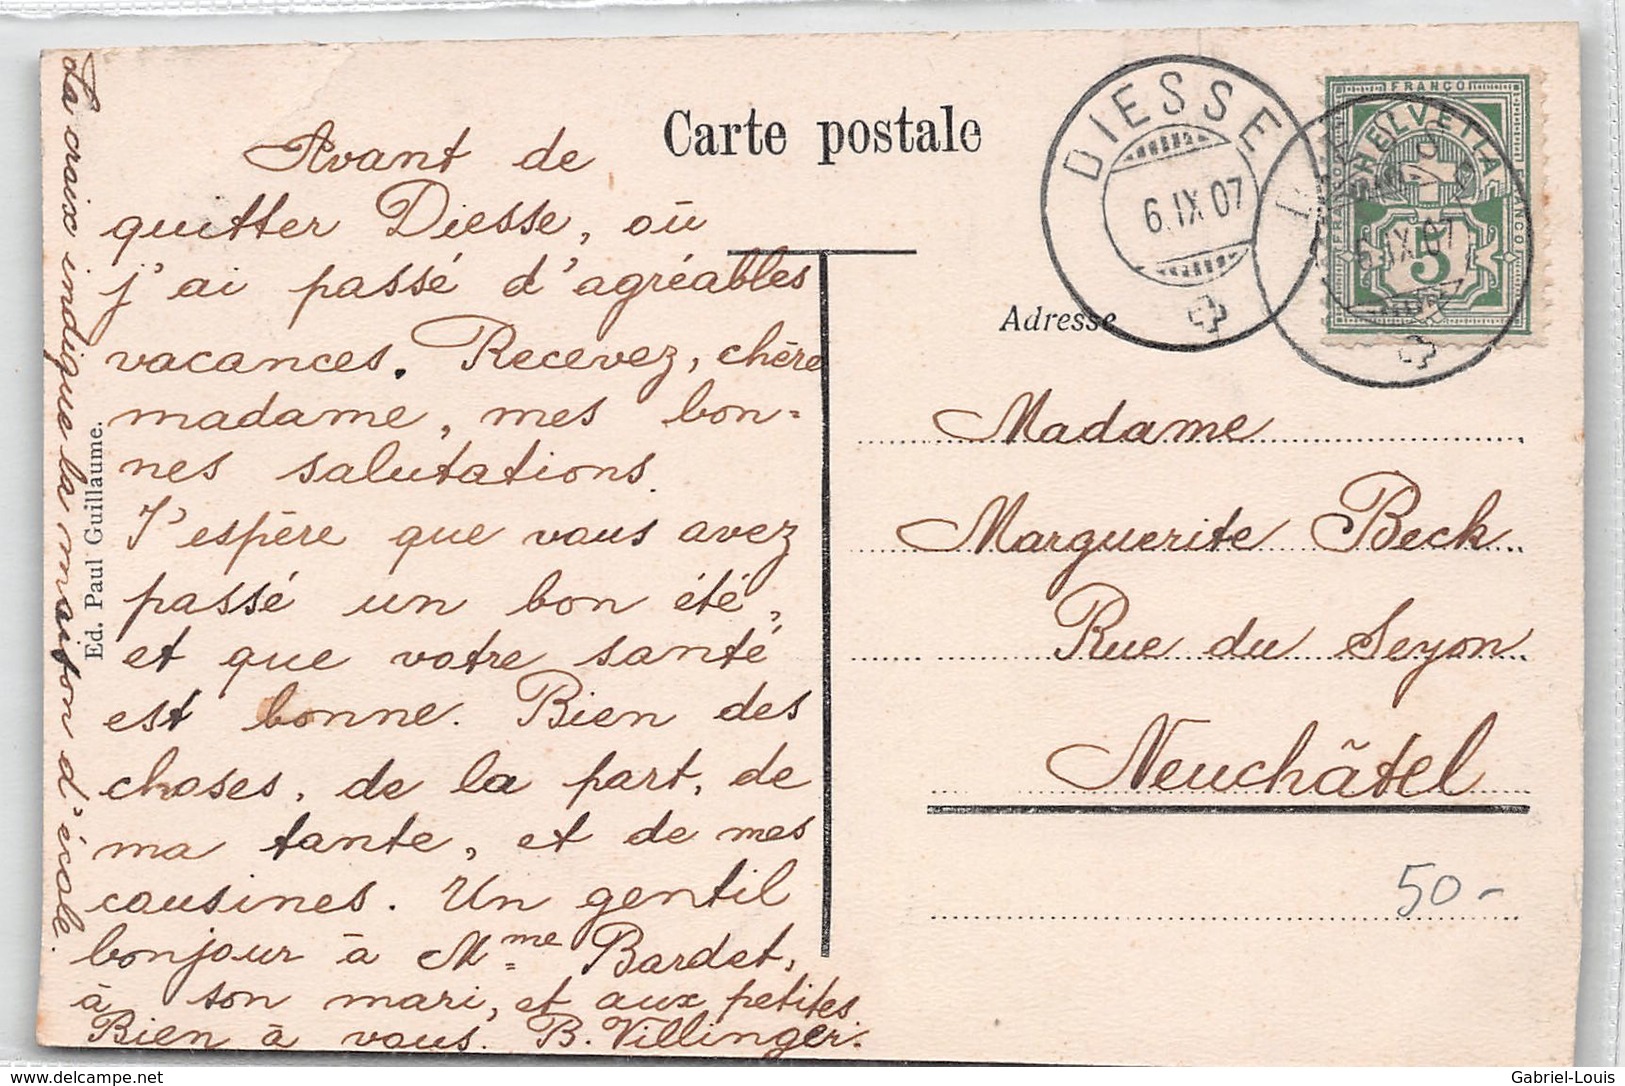 Carte postale
Avant de
quitter Diesse, où
j'ai passé d'agréables
vacances. Recevez, chère
madame, mes bon-
nes salutations.
J'espère que vous avez
passé un bon été,
et que votre santé
est bonne. Bien des
choses, de la part, de
ma tante, et de mes
cousines. Un gentil
bonjour à Mme Bardet,
à son mari, et aux petites
Bien à vous. B. Villinger.
La croix indique la maison d'école.
Ed. Paul Guillaume.
DIESSE
6.IX.07
FRANCO
HELVETIA
5
6.IX.07
Adresse
Madame
Marguerite Beck
Rue du Seyon
Neuchâtel
50-
delcampe.net
Gabriel-Louis